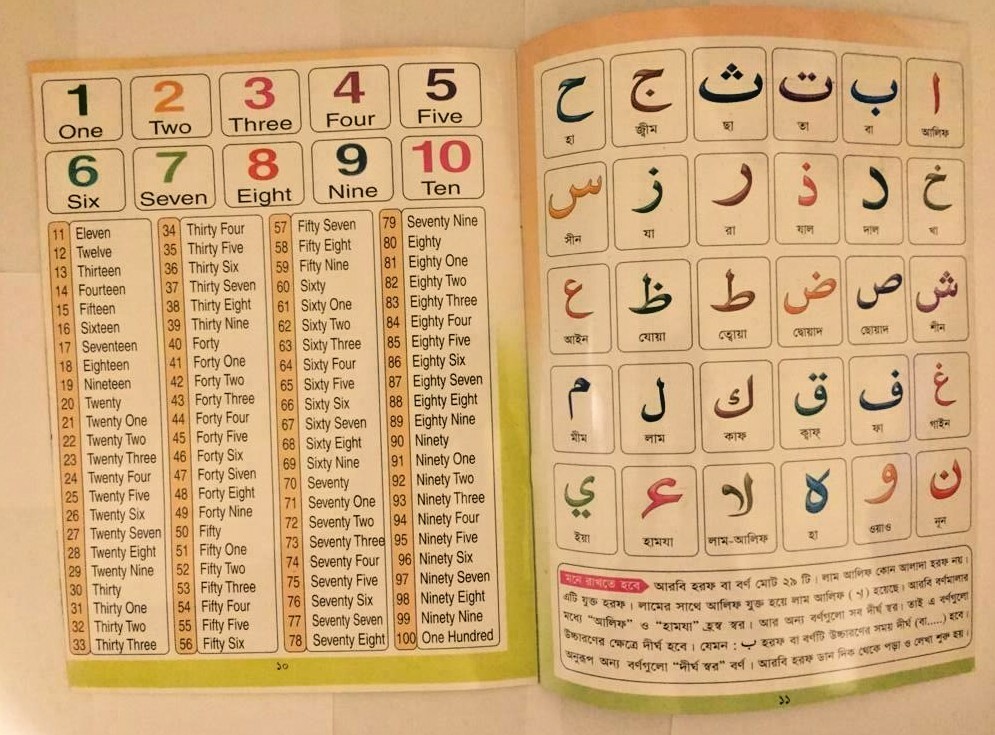 1 2 3 4 5
One Two Three Four Five
6 7 8 9 10
Six Seven Eight Nine Ten
11 Eleven
12 Twelve
13 Thirteen
14 Fourteen
15 Fifteen
16 Sixteen
17 Seventeen
18 Eighteen
19 Nineteen
20 Twenty
21 Twenty One
22 Twenty Two
23 Twenty Three
24 Twenty Four
25 Twenty Five
26 Twenty Six
27 Twenty Seven
28 Twenty Eight
29 Twenty Nine
30 Thirty
31 Thirty One
32 Thirty Two
33 Thirty Three
34 Thirty Four
35 Thirty Five
36 Thirty Six
37 Thirty Seven
38 Thirty Eight
39 Thirty Nine
40 Forty
41 Forty One
42 Forty Two
43 Forty Three
44 Forty Four
45 Forty Five
46 Forty Six
47 Forty Siven
48 Forty Eight
49 Forty Nine
50 Fifty
51 Fifty One
52 Fifty Two
53 Fifty Three
54 Fifty Four
55 Fifty Five
56 Fifty Six
57 Fifty Seven
58 Fifty Eight
59 Fifty Nine
60 Sixty
61 Sixty One
62 Sixty Two
63 Sixty Three
64 Sixty Four
65 Sixty Five
66 Sixty Six
67 Sixty Seven
68 Sixty Eight
69 Sixty Nine
70 Seventy
71 Seventy One
72 Seventy Two
73 Seventy Three
74 Seventy Four
75 Seventy Five
76 Seventy Six
77 Seventy Seven
78 Seventy Eight
79 Seventy Nine
80 Eighty
81 Eighty One
82 Eighty Two
83 Eighty Three
84 Eighty Four
85 Eighty Five
86 Eighty Six
87 Eighty Seven
88 Eighty Eight
89 Eighty Nine
90 Ninety
91 Ninety One
92 Ninety Two
93 Ninety Three
94 Ninety Four
95 Ninety Five
96 Ninety Six
97 Ninety Seven
98 Ninety Eight
99 Ninety Nine
100 One Hundred
১০
ا ب ت ث ج ح
আলিফ বা তা ছা জ্বীম হা
خ د ذ ر ز س
খা দাল যাল রা যা সীন
ش ص ض ط ظ ع
শীন ছোয়াদ দ্বোয়াদ ত্বোয়া যোয়া আইন
غ ف ق ك ل م
গাইন ফা ক্বাফ্ কাফ লাম মীম
ن و ه لا ء ي
নূন ওয়াও হা লাম-আলিফ হামযা ইয়া
মনে রাখতে হবে আরবি হরফ বা বর্ণ মোট ২৯ টি। লাম আলিফ কোন আলাদা হরফ নয়।
এটি যুক্ত হরফ। লামের সাথে আলিফ যুক্ত হয়ে লাম আলিফ (لا) হয়েছে। আরবি বর্ণমালার
মধ্যে "আলিফ" ও "হামযা" হ্রস্ব স্বর। আর অন্য বর্ণগুলো সব দীর্ঘ স্বর। তাই এ বর্ণগুলো
উচ্চারণের ক্ষেত্রে দীর্ঘ হবে। যেমন : ب হরফ বা বর্ণটি উচ্চারণের সময় দীর্ঘ (বা.....) হবে।
অনুরূপ অন্য বর্ণগুলো "দীর্ঘ স্বর" বর্ণ। আরবি হরফ ডান দিক থেকে পড়া ও লেখা শুরু হয়।
১১